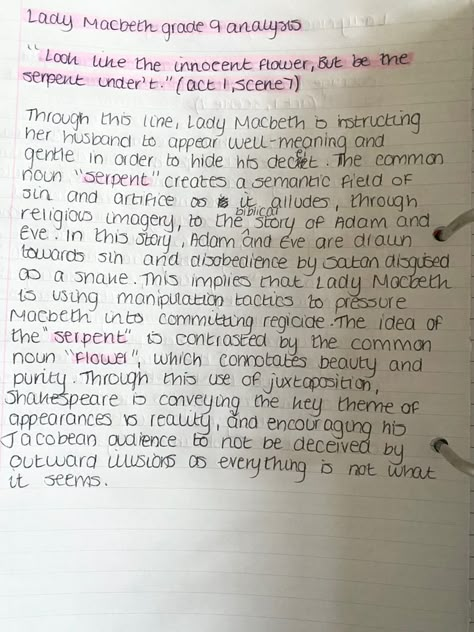 Lady Macbeth grade 9 analysis
"Look like the innocent flower, But be the
serpent under't." (act 1, scene 7)
Through this line, Lady Macbeth is instructing
her husband to appear well-meaning and
gentle in order to hide his deceit. The common
noun "serpent" creates a semantic field of
sin and artifice as it alludes, through
religious imagery, to the biblical story of Adam and
Eve. In this story, Adam and Eve are drawn
towards sin and disobedience by Satan disguised
as a snake. This implies that Lady Macbeth
is using manipulation tactics to pressure
Macbeth into committing regicide. The idea of
the "serpent" is contrasted by the common
noun "Flower", which connotates beauty and
purity. Through this use of juxtaposition,
Shakespeare is conveying the key theme of
appearances vs reality, and encouraging his
Jacobean audience to not be deceived by
outward illusions as everything is not what
it seems.